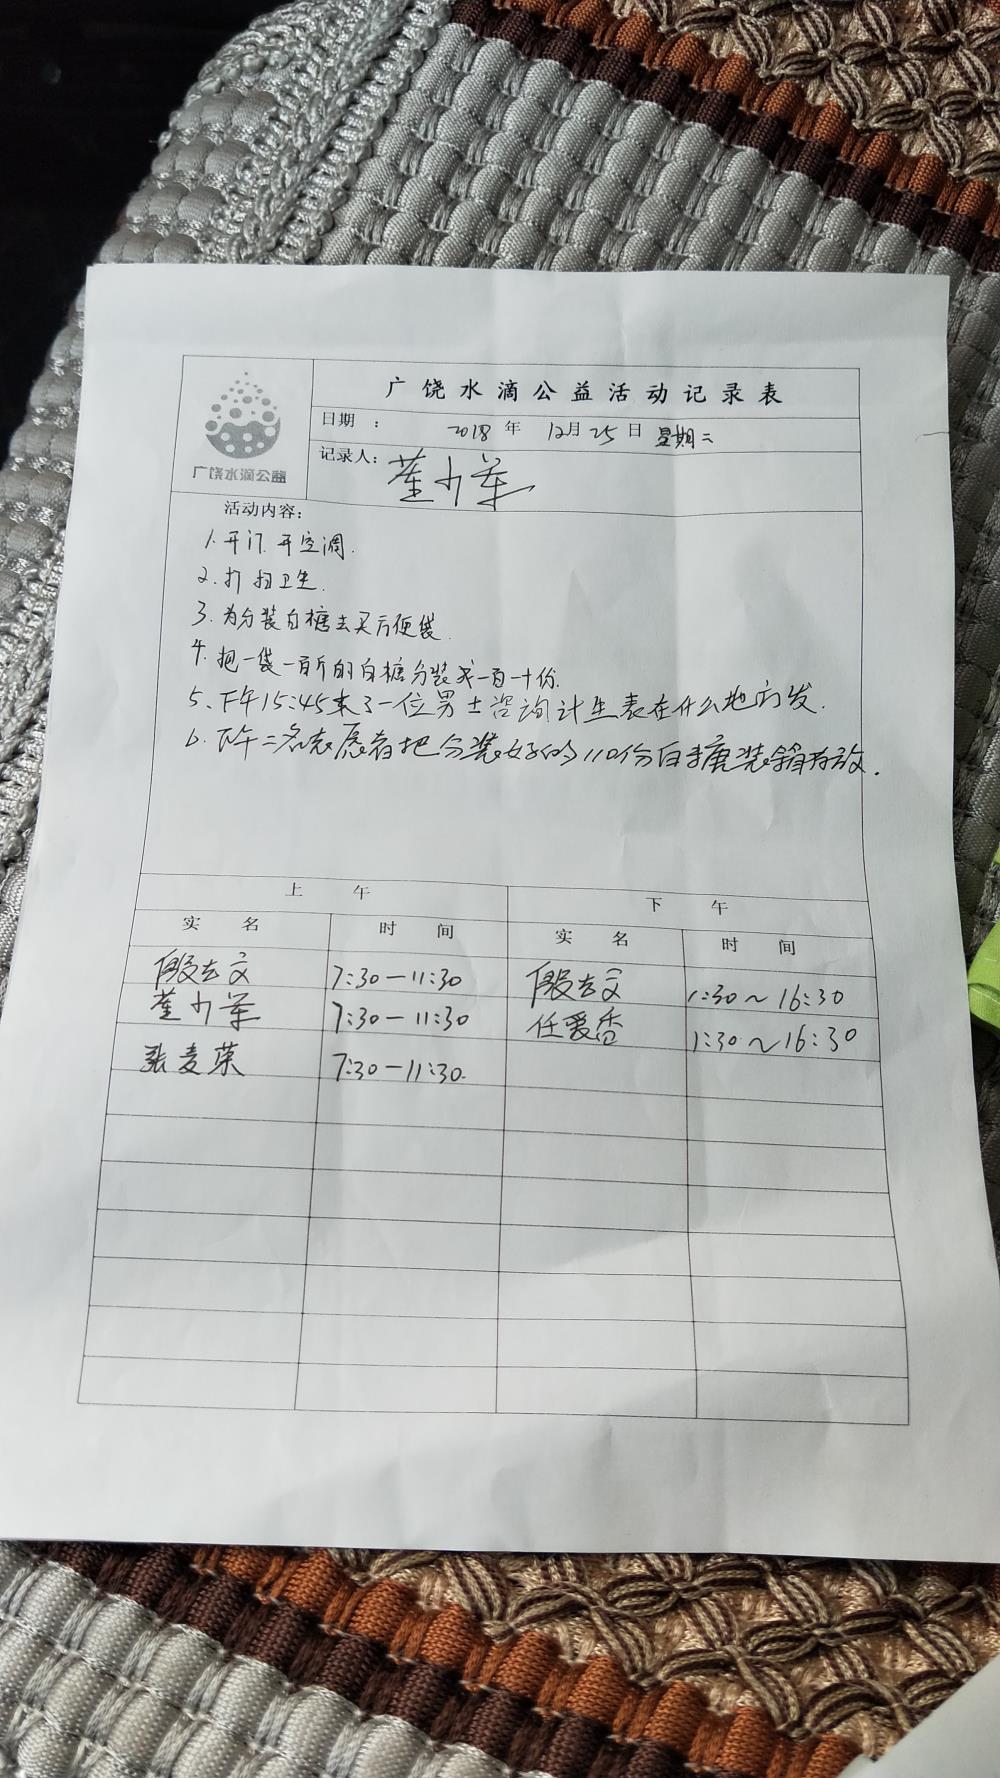 广饶水滴公益活动记录表
广饶水滴公益
日期 : 2018 年 12月 25 日 星期二
记录人:
活动内容:
1. 开门. 开空调.
2. 打扫卫生.
3. 为分装白糖去买方便袋.
4. 把一袋一百斤的白糖分装成一百一十份.
5、下午15:45来了一位男士咨询计生表在什么地方发.
6. 下午二名志愿者把分装好的110份白糖装箱存放.
上 午 下 午
实 名 时 间 实 名 时 间
殷志文 7:30—11:30 殷志文 1:30～16:30
7:30—11:30 任爱香 1:30～16:30
张麦荣 7:30—11:30.